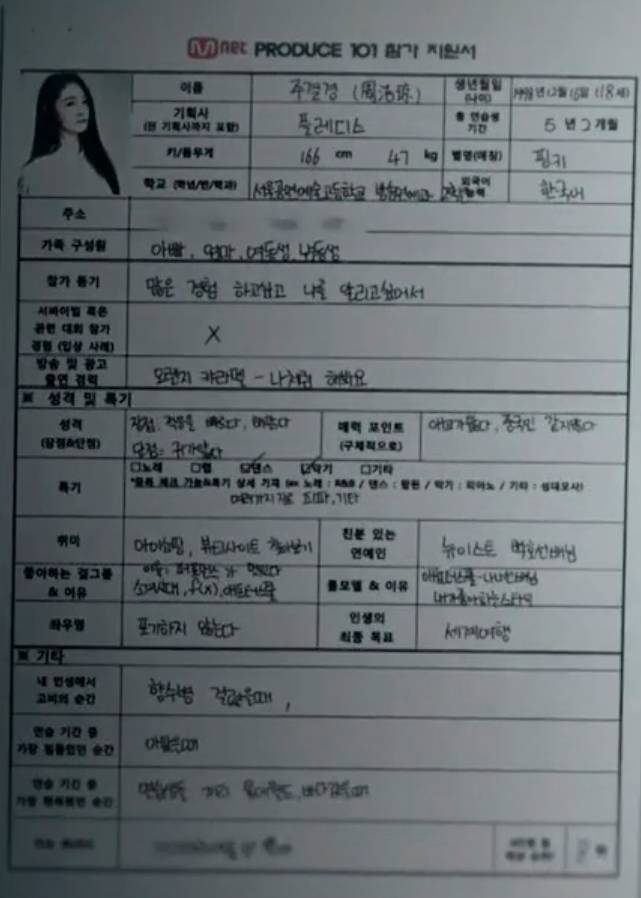 Mnet PRODUCE 101 참가 지원서
이름 주결경 (周洁琼) 생년월일 (나이) 1998년 12월 16일 (18세)
기획사 (전 기획사까지 포함) 플레디스 총 연습생 기간 5년 2개월
키/몸무게 166 cm 47 kg 별명(애칭) 핑키
학교 (학년/반/학과) 서울공연예술고등학교 외국어 능력 한국어
주소
가족 구성원 아빠, 엄마, 여동생, 남동생
참가 동기 많은 경험 하고싶고 나를 알리고싶어서
서바이벌 혹은 관련 대회 참가 경험 (입상 사례) X
방송 및 광고 출연 경력 오렌지 캬라멜 - 나처럼 해봐요
※ 성격 및 특기
성격 (장점&단점) 장점: 적응을 빠르다,
단점: 귀가얇다
매력 포인트 (구체적으로)
특기 □노래 □랩 ☑댄스 ☑악기 □기타
*중복 체크 가능&특기 상세 기재 (ex 노래 : R&B / 댄스 : 팝핀 / 악기 : 피아노 / 기타 : 성대모사)
여러가지 장르 피파, 기타
취미 아이쇼핑, 뷰티사이트 찾아보기
친분 있는 연예인 뉴이스트 백호선배님
좋아하는 걸그룹 & 이유 이유: 퍼포먼스가 멋있다
소녀시대, f(x), 애프터스쿨
롤모델 & 이유 애프터스쿨-나나선배님
내가좋아하는스타일
좌우명 포기하지 않는다
인생의 최종 목표 세계여행
※ 기타
내 인생에서 고비의 순간 향수병 걸렸을때,
연습 기간 중 가장 힘들었던 순간 아팠을때
연습 기간 중 가장 행복했던 순간